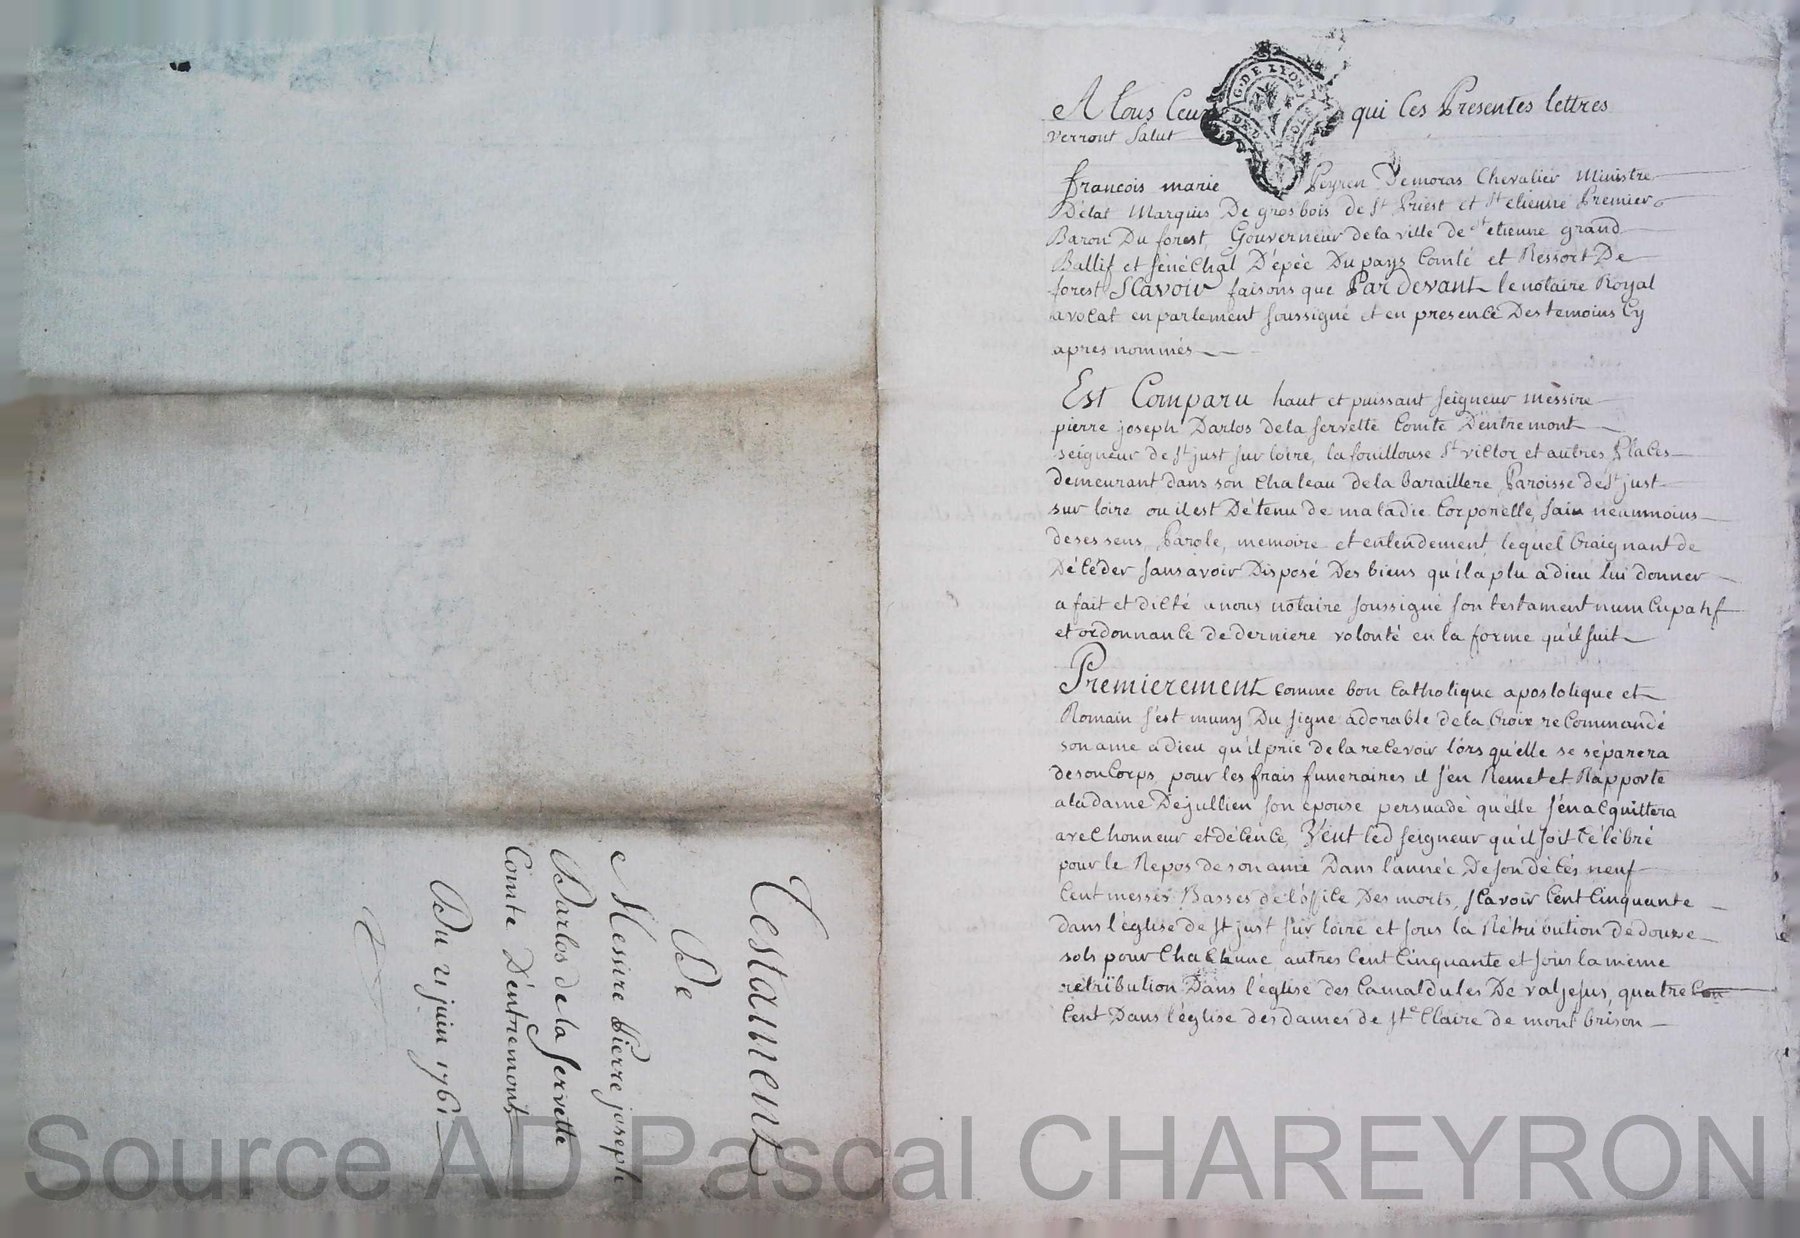 Testament
De
Messire Pierre joseph
Darlos de la Servette
Comte D'entremont
Du 21 juin 1761
A tous Ceux qui Ces Presentes lettres
verront Salut
G. DE LYON
francois marie Peyren Demoras Chevalier Ministre
D'état Marquis De grosbois de St Priest et St etienne Premier
Baron Du forest, Gouverneur de la ville de St etienne grand
Ballif et sénéchal D'épée Du pays Comté et Ressort De
forest Sçavoir faisons que Par devant le notaire Royal
avocat en parlement soussigné et en presence Des temoins Cy
apres nommés
Est Comparu haut et puissant seigneur messire
pierre joseph Darlos de la servette Comte D'entremont
seigneur de St just sur loire, la fouillouse St victor et autres Places
demeurant dans son chateau de la baraillere Paroisse de St just
sur loire ou il est Détenu de maladie Corporelle, sain neanmoins
de ses sens, Parole, memoire et entendement, lequel Craignant de
Décéder sans avoir Disposé Des biens qu'il a plu a dieu lui donner
a fait et dicté a nous notaire soussigné son testament nuncupatif
et ordonnance de derniere volonté en la forme qu'il suit
Premierement comme bon Catholique apostolique et
Romain s'est muny Du signe adorable de la Croix recommandé
son ame a dieu qu'il prie de la recevoir lors qu'elle se séparera
de son Corps, pour les frais funeraires il s'en Remet et Rapporte
a la dame Dejullien son épouse persuadé qu'elle s'en acquittera
avec honneur et décence, Veut led seigneur qu'il soit Célébré
pour le Repos de son ame Dans l'année De son décés neuf
Cent messes Basses de l'office Des morts, sçavoir Cent Cinquante
dans l'église de St just sur loire et sous la Rétribution de douze
sols pour Chacune, autres Cent Cinquante et sous la meme
retribution Dans l'église des Camaldules De valjesus, quatre
Cent Dans l'église des dames de Ste Claire de mont brison
Source AD Pascal CHAREYRON